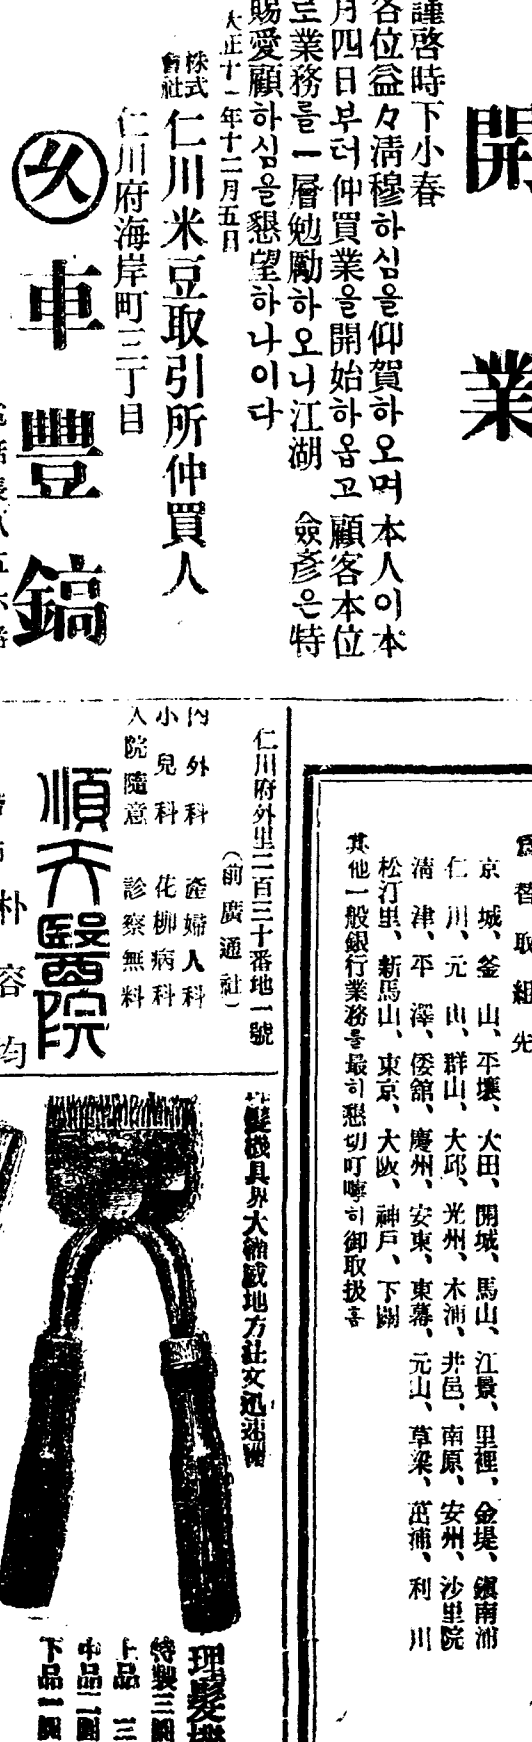 開業
謹啓時下小春
各位益々淸穆하심을仰賀하오며本人이本
月四日부터仲買業을開始하옵고 顧客本位
로業務를一層勉勵하오니江湖 僉彥은特
賜愛顧하심을懇望하나이다
大正十一年十二月五日
株式會社 仁川米豆取引所仲買人
仁川府海岸町三丁目
車豐鎬
爲替取組先
京城、釜山、平壤、大田、開城、馬山、江景、里裡、金堤、鎭南浦
仁川、元山、群山、大邱、光州、木浦、井邑、南原、安州、沙里院
淸津、平澤、倭館、慶州、安東、東幕、元山、草梁、茁浦、利川
松汀里、新馬山、東京、大阪、神戶、下關
其他一般銀行業務를最히懇切叮嚀히御取扱홈
仁川府外里二百三十番地一號
（前廣通社）
內外科 產婦人科
小兒科 花柳病科
入院隨意 診察無料
順天醫院
朴容均
髮機具界大権威地方注文迅速
理髮機
特製三圓
上品 三
中品二圓
下品一圓